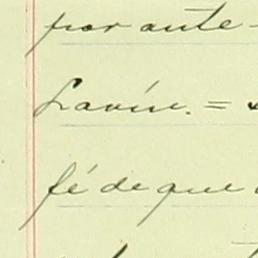 por ante-
Lavín. =
fé de que